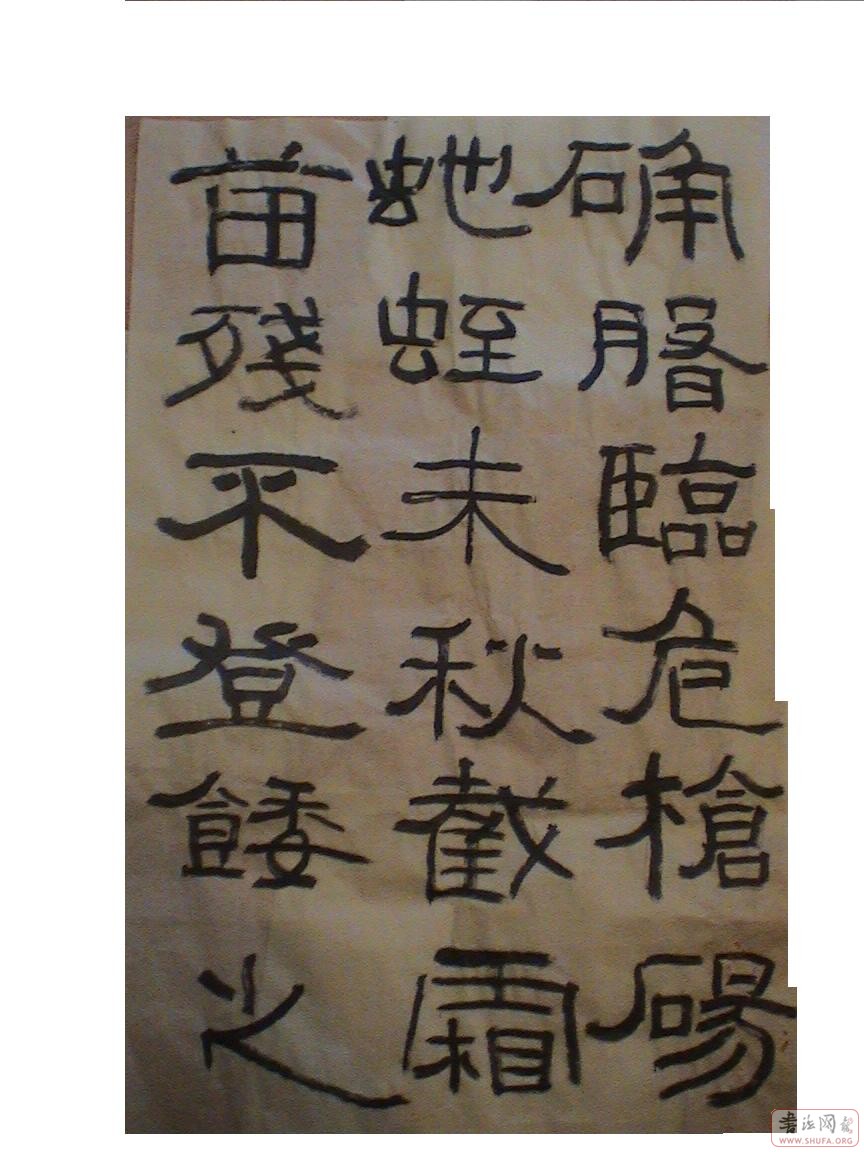 确磐臨危槍碭
虵蛭未秋截霜
苗殘不登餧之
WWW.SHUFA.ORG